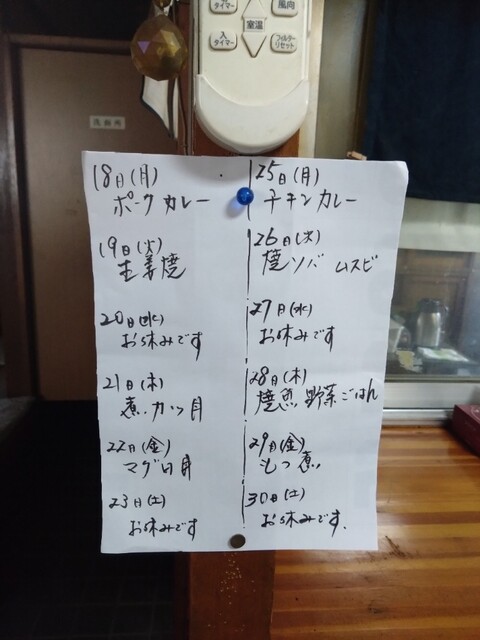 タイマー
風向
室温
入
タイマー
フィルター
リセット
洗面所
18日(月)
ポークカレー
19日(火)
生姜焼
20日(水)
お休みです
21日(木)
煮カツ丼
22日(金)
マグロ丼
23日(土)
お休みです
25日(月)
チキンカレー
26日(火)
焼ソバ ムスビ
27日(水)
お休みです
28日(木)
焼魚 野菜ごはん
29日(金)
もつ煮
30日(土)
お休みです.